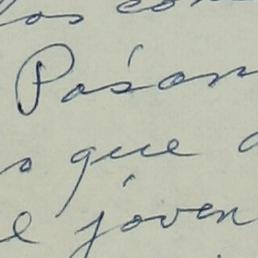 los con
Pasan
s que a
e joven